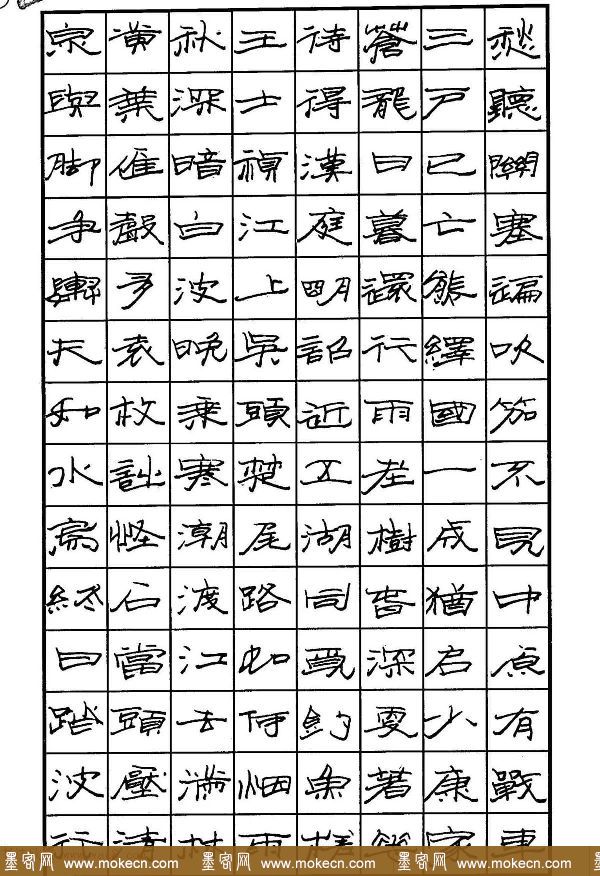 愁聽關塞遍吹笳不見中原有戰車
三戶已亡熊繹國一成猶啟少康家
蒼龍日暮還行雨老樹春深更著花
待得漢庭明詔近五湖同覓釣魚槎
王士禎江上吳頭楚尾路如何烟雨
秋深暗白波晚乘寒潮渡江去滿林
黃葉雁聲多袁枚詘怪石當頭壓清
與腳爭轎夫水終日踏波行
墨客网 www.mokecn.com 墨客网 www.mokecn.com 墨客网 www.mokecn.com